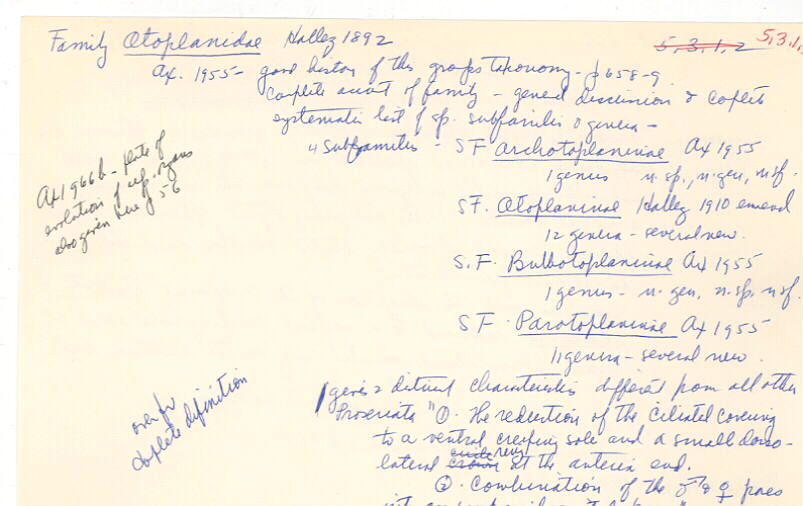 Family Otoplanidae Hallez 1892
5,3,1,2 5,3,1,
Ax. 1955 - good history of this groups taxonomy - p 658-9.
Complete account of family - general discussion & complete
systematic list of sp. subfamilies & genera -
4 subfamilies - SF Archotoplaninae Ax 1955
1 genus n. sp., n. gen, n sf.
SF. Otoplaninae Hallez 1910 emend
12 genera - several new.
S.F. Bulbotoplaninae Ax 1955
1 genus - n. gen, n. sp. n sf.
SF. Parotoplaninae Ax 1955
11 genera - several new.
Ax 1966b - plate of
evolution of rep. organs
also given here p 56
over for
complete definition
gives 2 distinct characteristics different from all other
Proseriata "①. The reduction of the ciliated covering
to a ventral creeping sole and a small dorso-
lateral at the anterior end.
②. Combination of the ♂ & ♀ pores